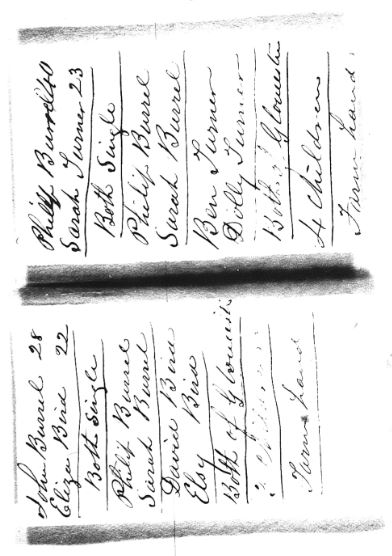 Philip Burrel 40
Sarah Turner 23
Both Single
Philip Burrel
Sarah Burrel
Ben Turner
Dolly Turner
Both Gloucester
4 Children
Farm Land
John Burrel 28
Eliza Bird 22
Both Single
Philip Burrel
Sarah Burrel
David Bird
Elsy Bird
Both of Gloucester
Farm Land